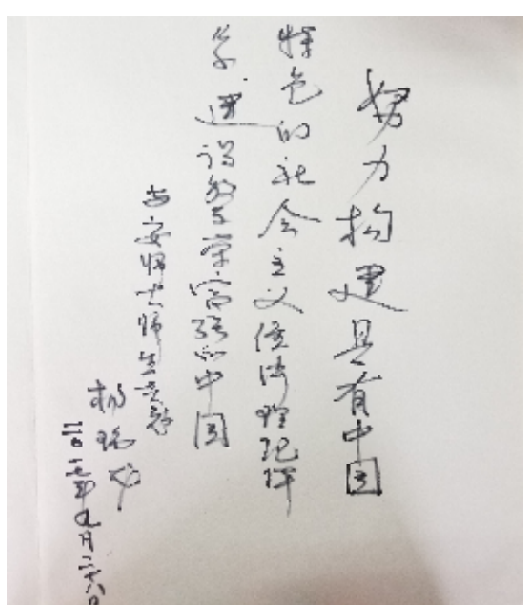 努力构建具有中国
特色的社会主义经济理论科
学,建设繁荣富强的中国
与安师大师生共勉
杨瑞
二〇一七年九月二六日